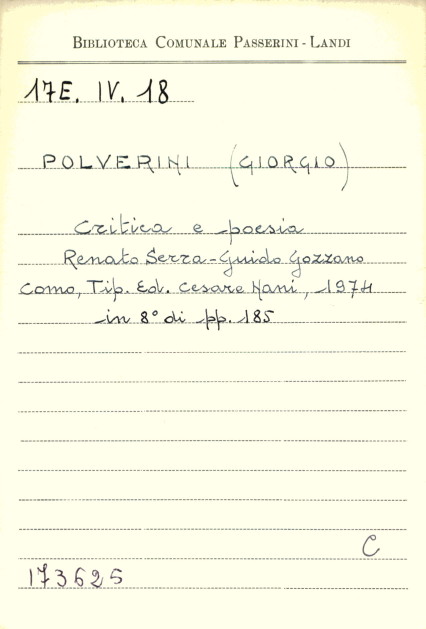 BIBLIOTECA COMUNALE PASSERINI - LANDI
17E. IV. 18
POLVERINI (GIORGIO)
Critica e poesia
Renato Serra - Guido Gozzano
Como, Tip. Ed. Cesare Nani, 1974
in 8° di pp. 185
C
173625